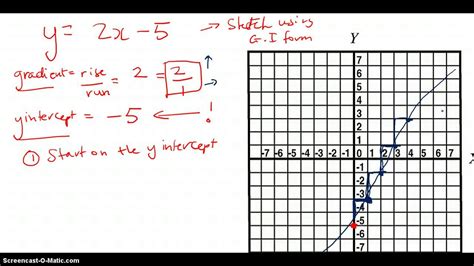 y = 2x - 5 → Sketch using
G.I form
gradient = rise/run = 2 = 2/1
y intercept = -5 ← !
① Start on the y intercept
Y
7
6
5
4
3
2
1
-7 -6 -5 -4 -3 -2 -1 0 1 2 3 4 5 6 7
-1
-2
-3
-4
-5
-6
-7
Screencast-O-Matic.com